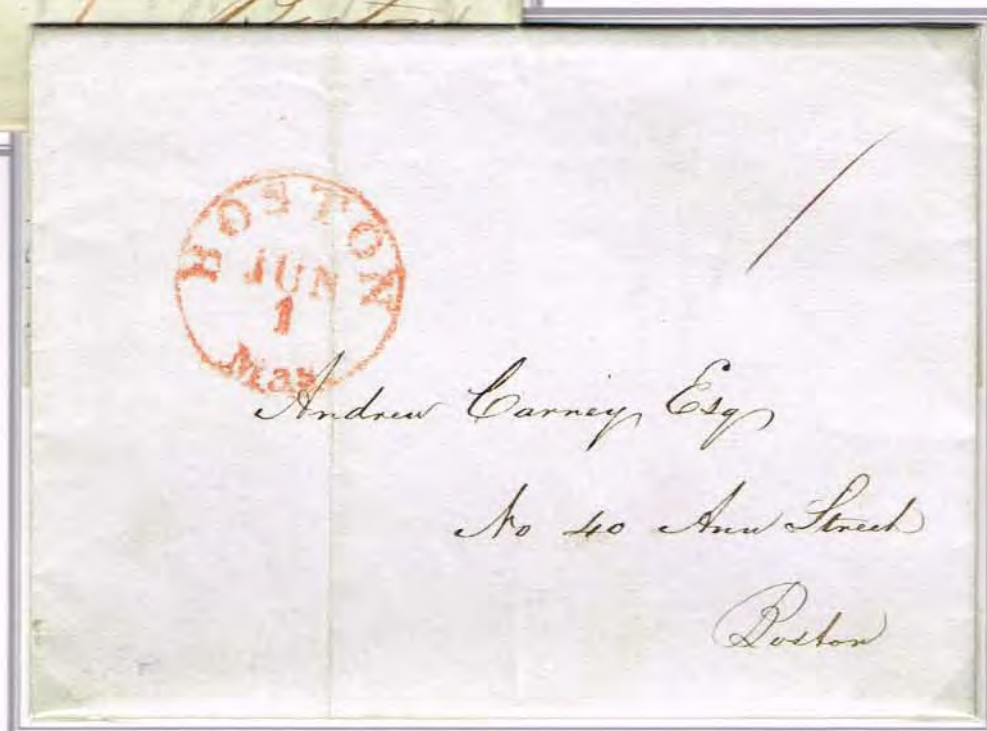 Boston
BOSTON
JUN
1
Mas
/
Andrew Carney Esq
No 40 Ann Street
Boston